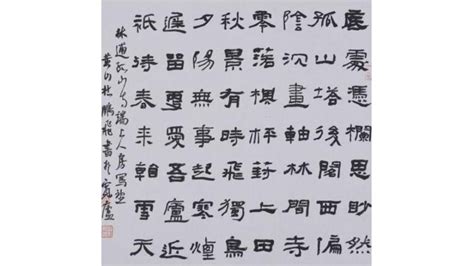 底處憑欄思眇然
孤山塔後閣西偏
陰沈畫軸林間寺
零落棋枰葑上田
秋景有時飛獨鳥
夕陽無事起寒煙
遲留更愛吾廬近
祇待春來看雪天
林逋孤山寺端上人房寫望
黃山杜鵬飛書於廬